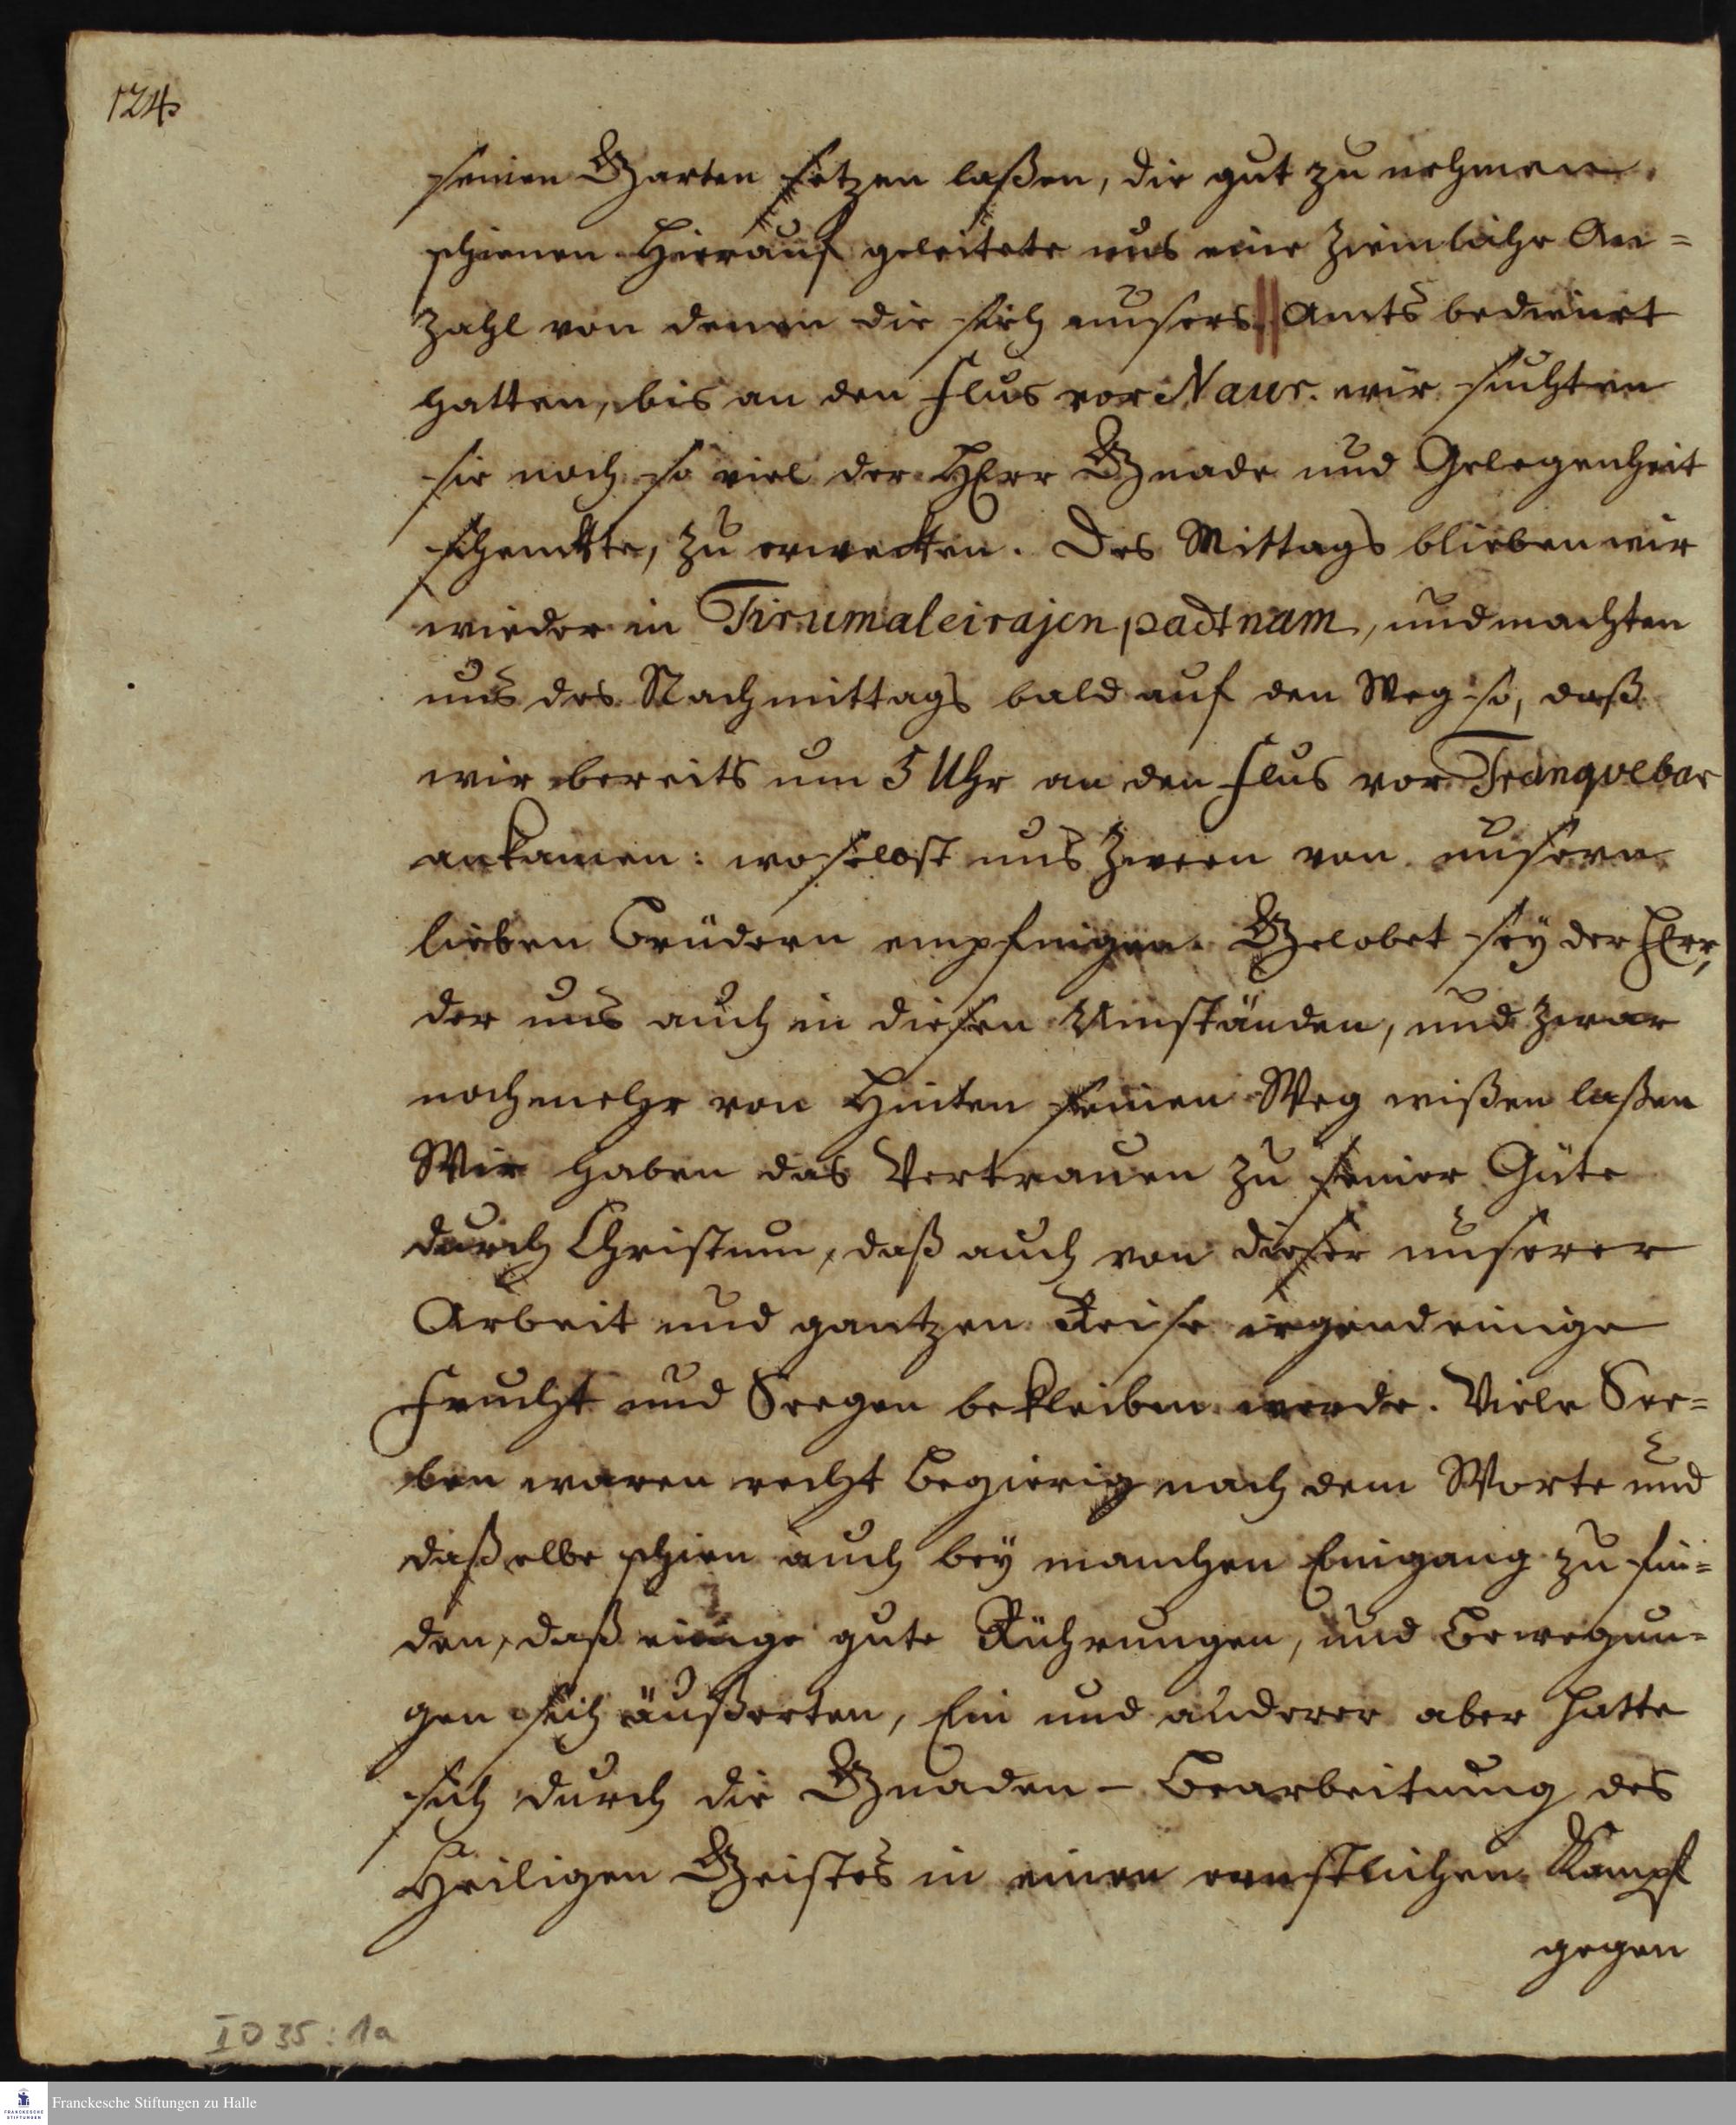 124
seinen Garten setzen laßen, die gut zu nehmen
schienen. Hierauf geleitete uns eine ziemliche An=
zahl von denen die sich unsers Amts bedienet
hatten, bis an den Flus vor Naur. wir suchten
sie noch so viel der HErr Gnade und Gelegenheit
schenckte, zu erwecken. Des Mittags blieben wir
wieder in Tirumaleirajenpadtnam, und machten
uns des Nachmittags bald auf den Weg so, daß
wir bereits um 5 Uhr an den Flus vor Tranquebar
ankamen: woselbst uns zween von unsern
lieben Brüdern empfingen. Gelobet sey der HErr,
der uns auch in diesen Umständen, und zwar
noch mehr von Hinten seinen Weg wißen laßen
Wir haben das Vertrauen zu seiner Güte
durch Christum, daß auch von dieser unserer
Arbeit und gantzen Reise irgend einige
Frucht und Seegen bekleiben werde. Viele See=
len waren recht begierig nach dem Worte und
daßelbe schien auch bey manchen Eingang zu fin=
den, daß einige gute Rührungen, und Bewegun=
gen sich äußerten, Ein und anderer aber hatte
sich durch die Gnaden-Bearbeitung des
Heiligen Geistes in einen ernstlichen Kampf
gegen
I D 35 : 1a
FRANCKESCHE STIFTUNGEN
Franckesche Stiftungen zu Halle